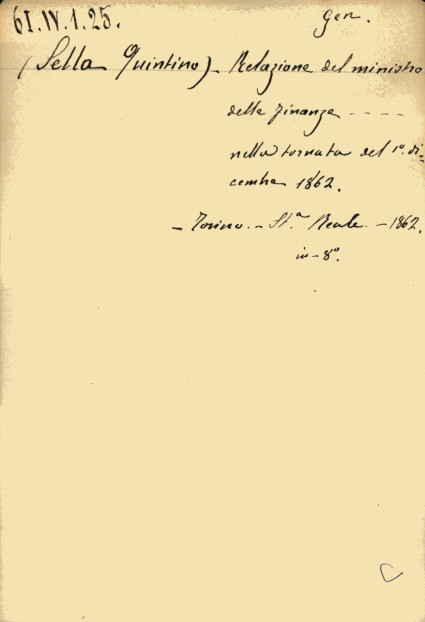 61.IV.1.25.
Gen.
(Sella Quintino) - Relazione del ministro
delle finanze ----
nella tornata del 1º. di-
cembre 1862.
- Torino. - St.ª Reale. - 1862.
in-8º.
C